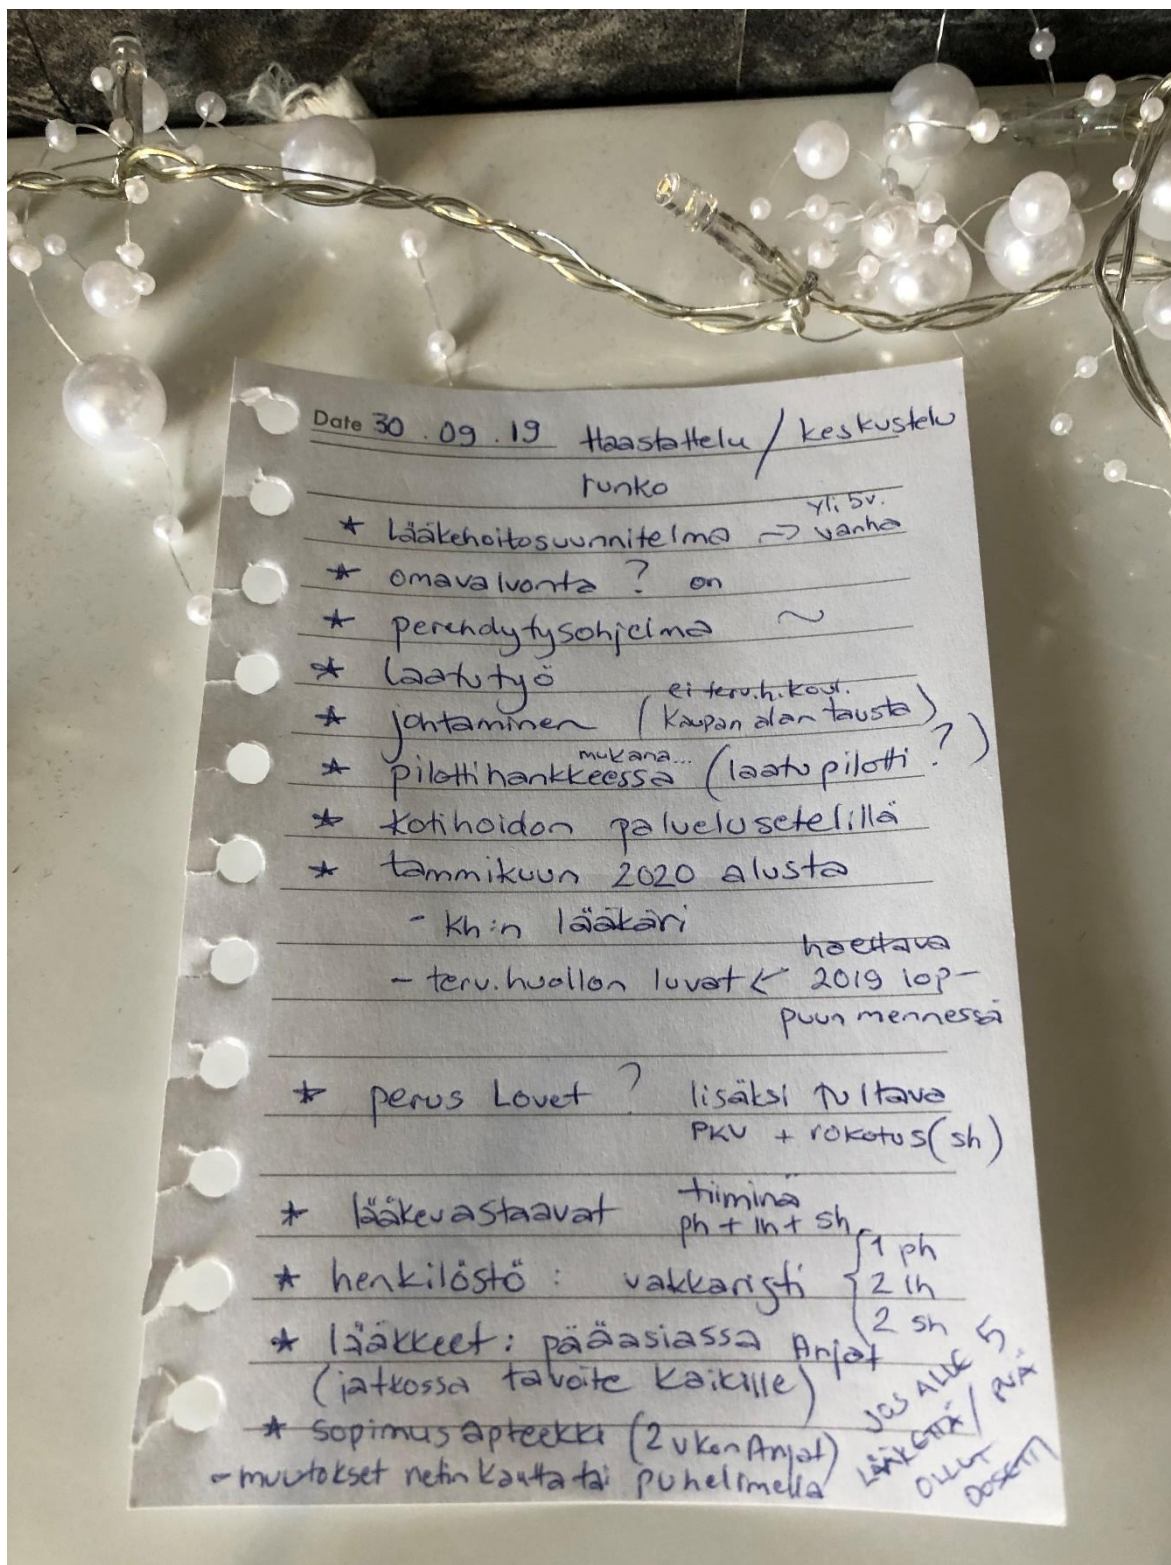 Date 30.09.19 Haastattelu / keskustelu
runko
* Lääkehoitosuunnitelma → yli 5v. vanha
* omavalvonta ? on
* perehdytysohjelma ~
* Laatutyö
* johtaminen (ei terv.h.koul. kaupan alan tausta)
* pilottihankkeessa mukana... (laatupilotti ?)
* kotihoidon palvelusetelillä
* tammikuun 2020 alusta
- kh:n lääkäri
- terv.huollon luvat ← haettava 2019 lop-
puun mennessä
* perus Lovet ? lisäksi tultava
PKV + rokotus (sh)
* lääkevastaavat tiiminä
ph + lh + sh
* henkilöstö : vakkaristi { 1 ph
2 lh
2 sh
* lääkkeet : pääasiassa Anjat
(jatkossa tavoite kaikille)
* sopimusapteekki (2 vkon Anjat)
- muutokset netin kautta tai puhelimella
JOS ALLE 5
LÄÄKETTÄ / PVÄ
OLLUT
DOSETTI